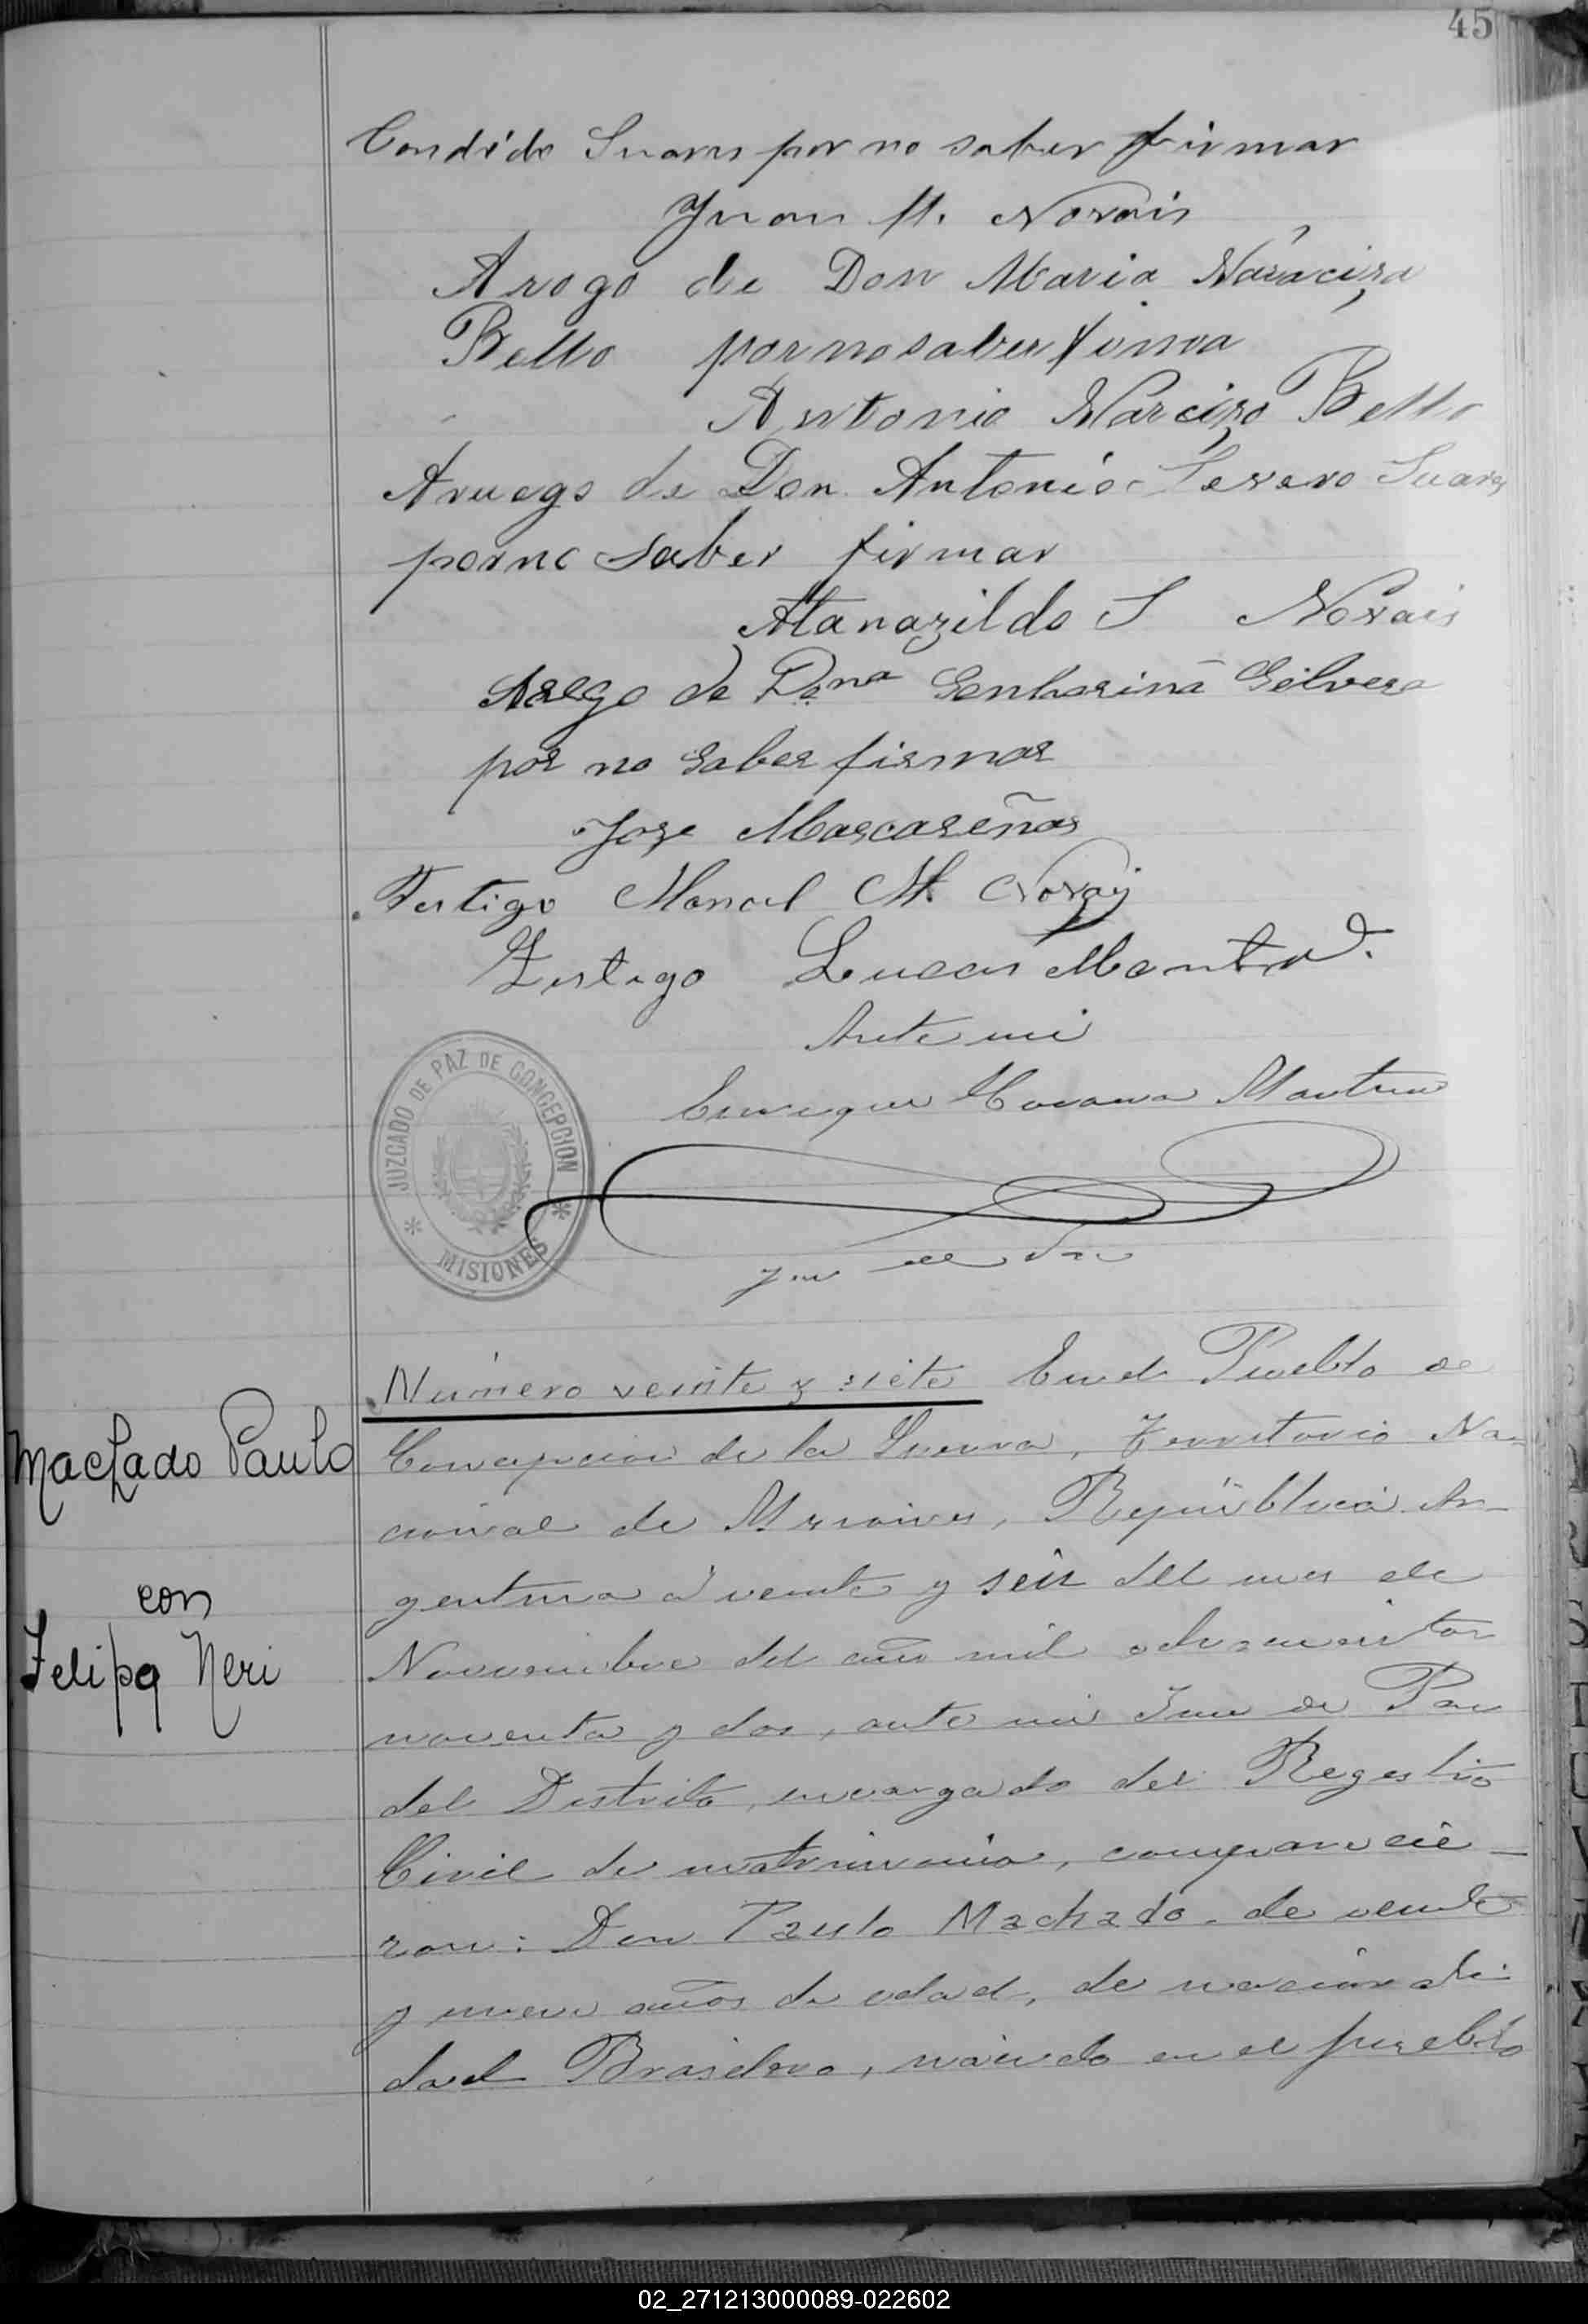 45
Candido Suares por no saber firmar
Juan M. Novais
Arogo de Don Maria Naraciza
Bello por no saber firma
Antonio Narcizo Bello
Aruego de Don Antonio Severo Suares
por no saber firmar
Atanazildo S Novais
Arego de Dona Senhorina Silvera
por no saber firmar
Jose Mascareñas
Testigo Manoel M. Novais
Testigo Lucas
Ante mi
Enrique
Juez de Paz
JUZGADO DE PAZ DE CONCEPCION
MISIONES
Número veinte y siete En el Pueblo de
Machado Paulo
con
Felipa Neri
Concepcion de la Sierra, Territorio Na-
cional de Misiones, República Ar-
gentina á veinte y seis del mes de
Noviembre del año mil ochocientos
noventa y dos, ante mi Juez de Paz
del Distrito, encargado del Registro
Civil de matrimonio, comparecie-
ron: Don Paulo Machado, de veinte
y nueve años de edad, de nacionali-
dad Brasilera, nacido en el pueblo
02_271213000089-022602